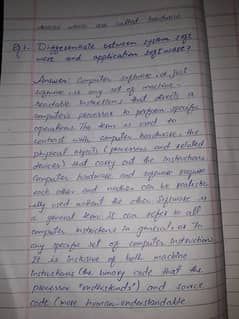 which are called hardware
Q1- Differentiate between system soft
ware and application software?
Answer: Computer software or just
software is any set of machine-
readable instructions that directs a
computer's processor to perform specific
operations. The term is used to
contrast with computer hardware, the
physical objects (processors and related
devices) that carry out the instructions
Computer hardware and software require
each other and neither can be realistic-
ally used without the other. Software is
a general term. It can refer to all
computer instructions in general or to
any specific set of computer instructions.
It is inclusive of both machine
instructions (the binary code that the
processor "understands") and source
code (more human-understandable